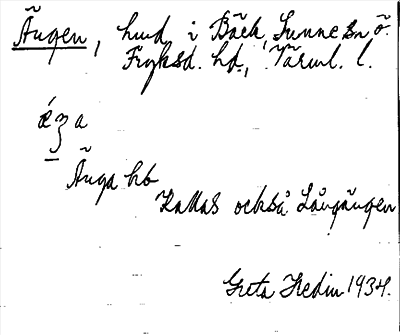 Ängen, hmd i Bäck, Sunne sn ö.
Fryksd. hd., Värml. l.
ǽʒa
Änga hb
Kallas också Långängen
Greta Hedin 1934.